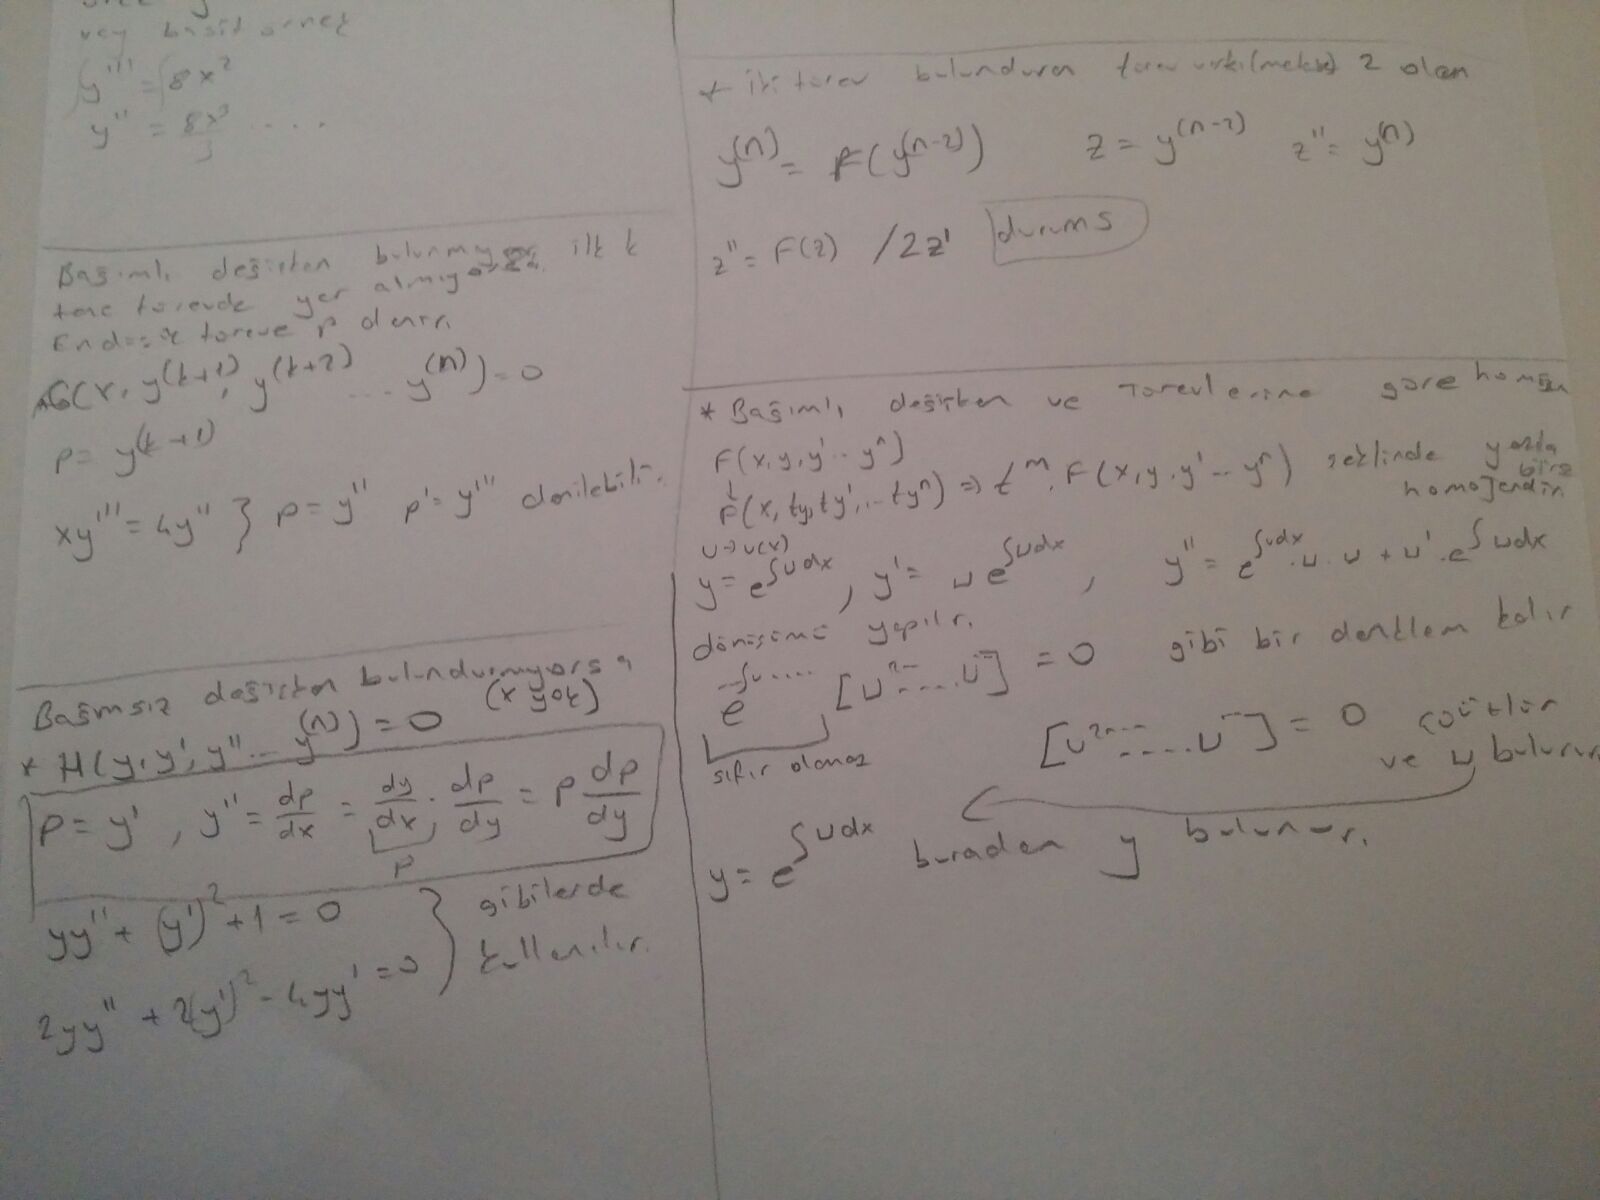 vey basit örnek
y''' = 8x²
y'' = 8x³/3 ....
Bağımlı değişken bulunmuyor ilk k
tane türevde yer almıyorsa.
En düşük türeve p denir.
G(x, y^(k+1), y^(k+2) ... y^(n)) = 0
p = y^(k+1)
xy''' = 4y'' } p = y'' p' = y''' denilebilir.
Bağımsız değişken bulundurmuyorsa
(x yok)
* H(y, y', y'' ... y^(n)) = 0
p = y', y'' = dp/dx = dy/dx . dp/dy = p dp/dy
p
yy'' + (y')² + 1 = 0 } gibilerde
2yy'' + 2(y')² - 4yy' = 0 kullanılır.
* iki türev bulunduran türev farkı 2 olan
y^(n) = F(y^(n-2)) z = y^(n-2) z'' = y^(n)
z'' = F(z) /2z' durum 5
* Bağımlı değişken ve Türevlerine göre homojen
F(x, y, y' ... yⁿ)
F(x, ty, ty', ... tyⁿ) => t^m . F(x, y, y' ... yⁿ) şeklinde
homojendir
u → u(x)
y = e^∫udx , y' = u e^∫udx , y'' = e^∫udx . u . u + u' . e^∫udx
dönüşümü yapılır.
e^∫u.... [u²⁻....u⁻] = 0 gibi bir denklem kalır
sıfır olamaz
[u²⁻....u⁻] = 0 çözülür
ve u bulunur
y = e^∫udx buradan y bulunur.